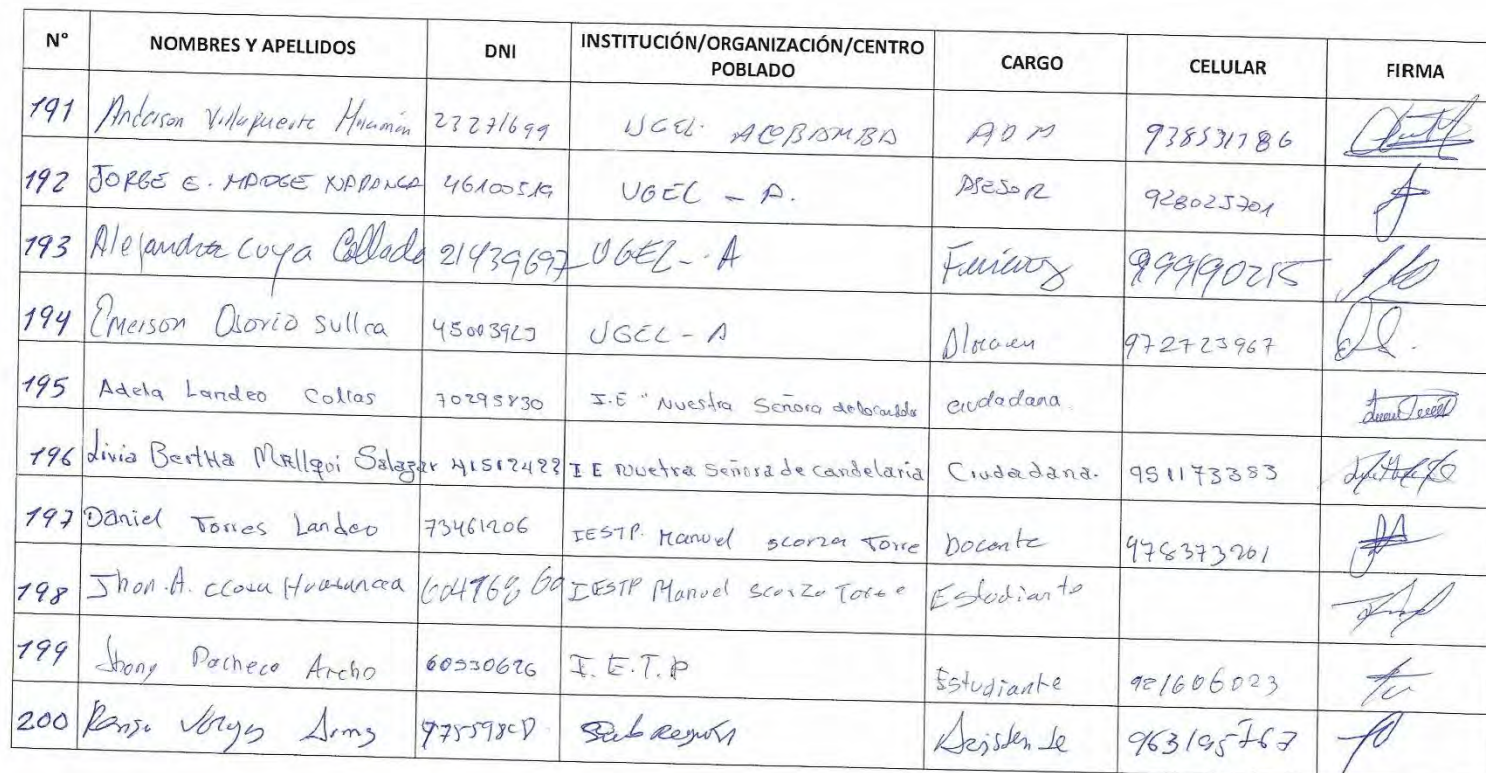 N° NOMBRES Y APELLIDOS DNI INSTITUCIÓN/ORGANIZACIÓN/CENTRO POBLADO CARGO CELULAR FIRMA
191 Anderson Villapuerte Huamán 23271699 UGEL. ACOBAMBA ADM 938531786
192 JORGE E. 46100519 UGEL - A. ASESOR 928025701
193 Alejandra Cuya Collado 21439697 UGEL - A 999190215
194 Emerson Osorio Sullca UGEL - A 972723967
195 Adela Landeo Collas 70295830 I.E " Nuestra Señora ciudadana
196 Livia BertHa Mallqui Salazar 41512423 I E Nuetra Señora de candelaria Ciudadana. 951173353
197 Daniel Torres Landeo 73461206 IESTP. Manuel scorza Torre Docente 978373201
198 Jhon. A. ccora IESTP Manuel Scorza Torre Estudiante
199 Jhony Pacheco Archo 60530626 I. E. T. P Estudiante 921606023
200 Sub Región Asistente 963195767